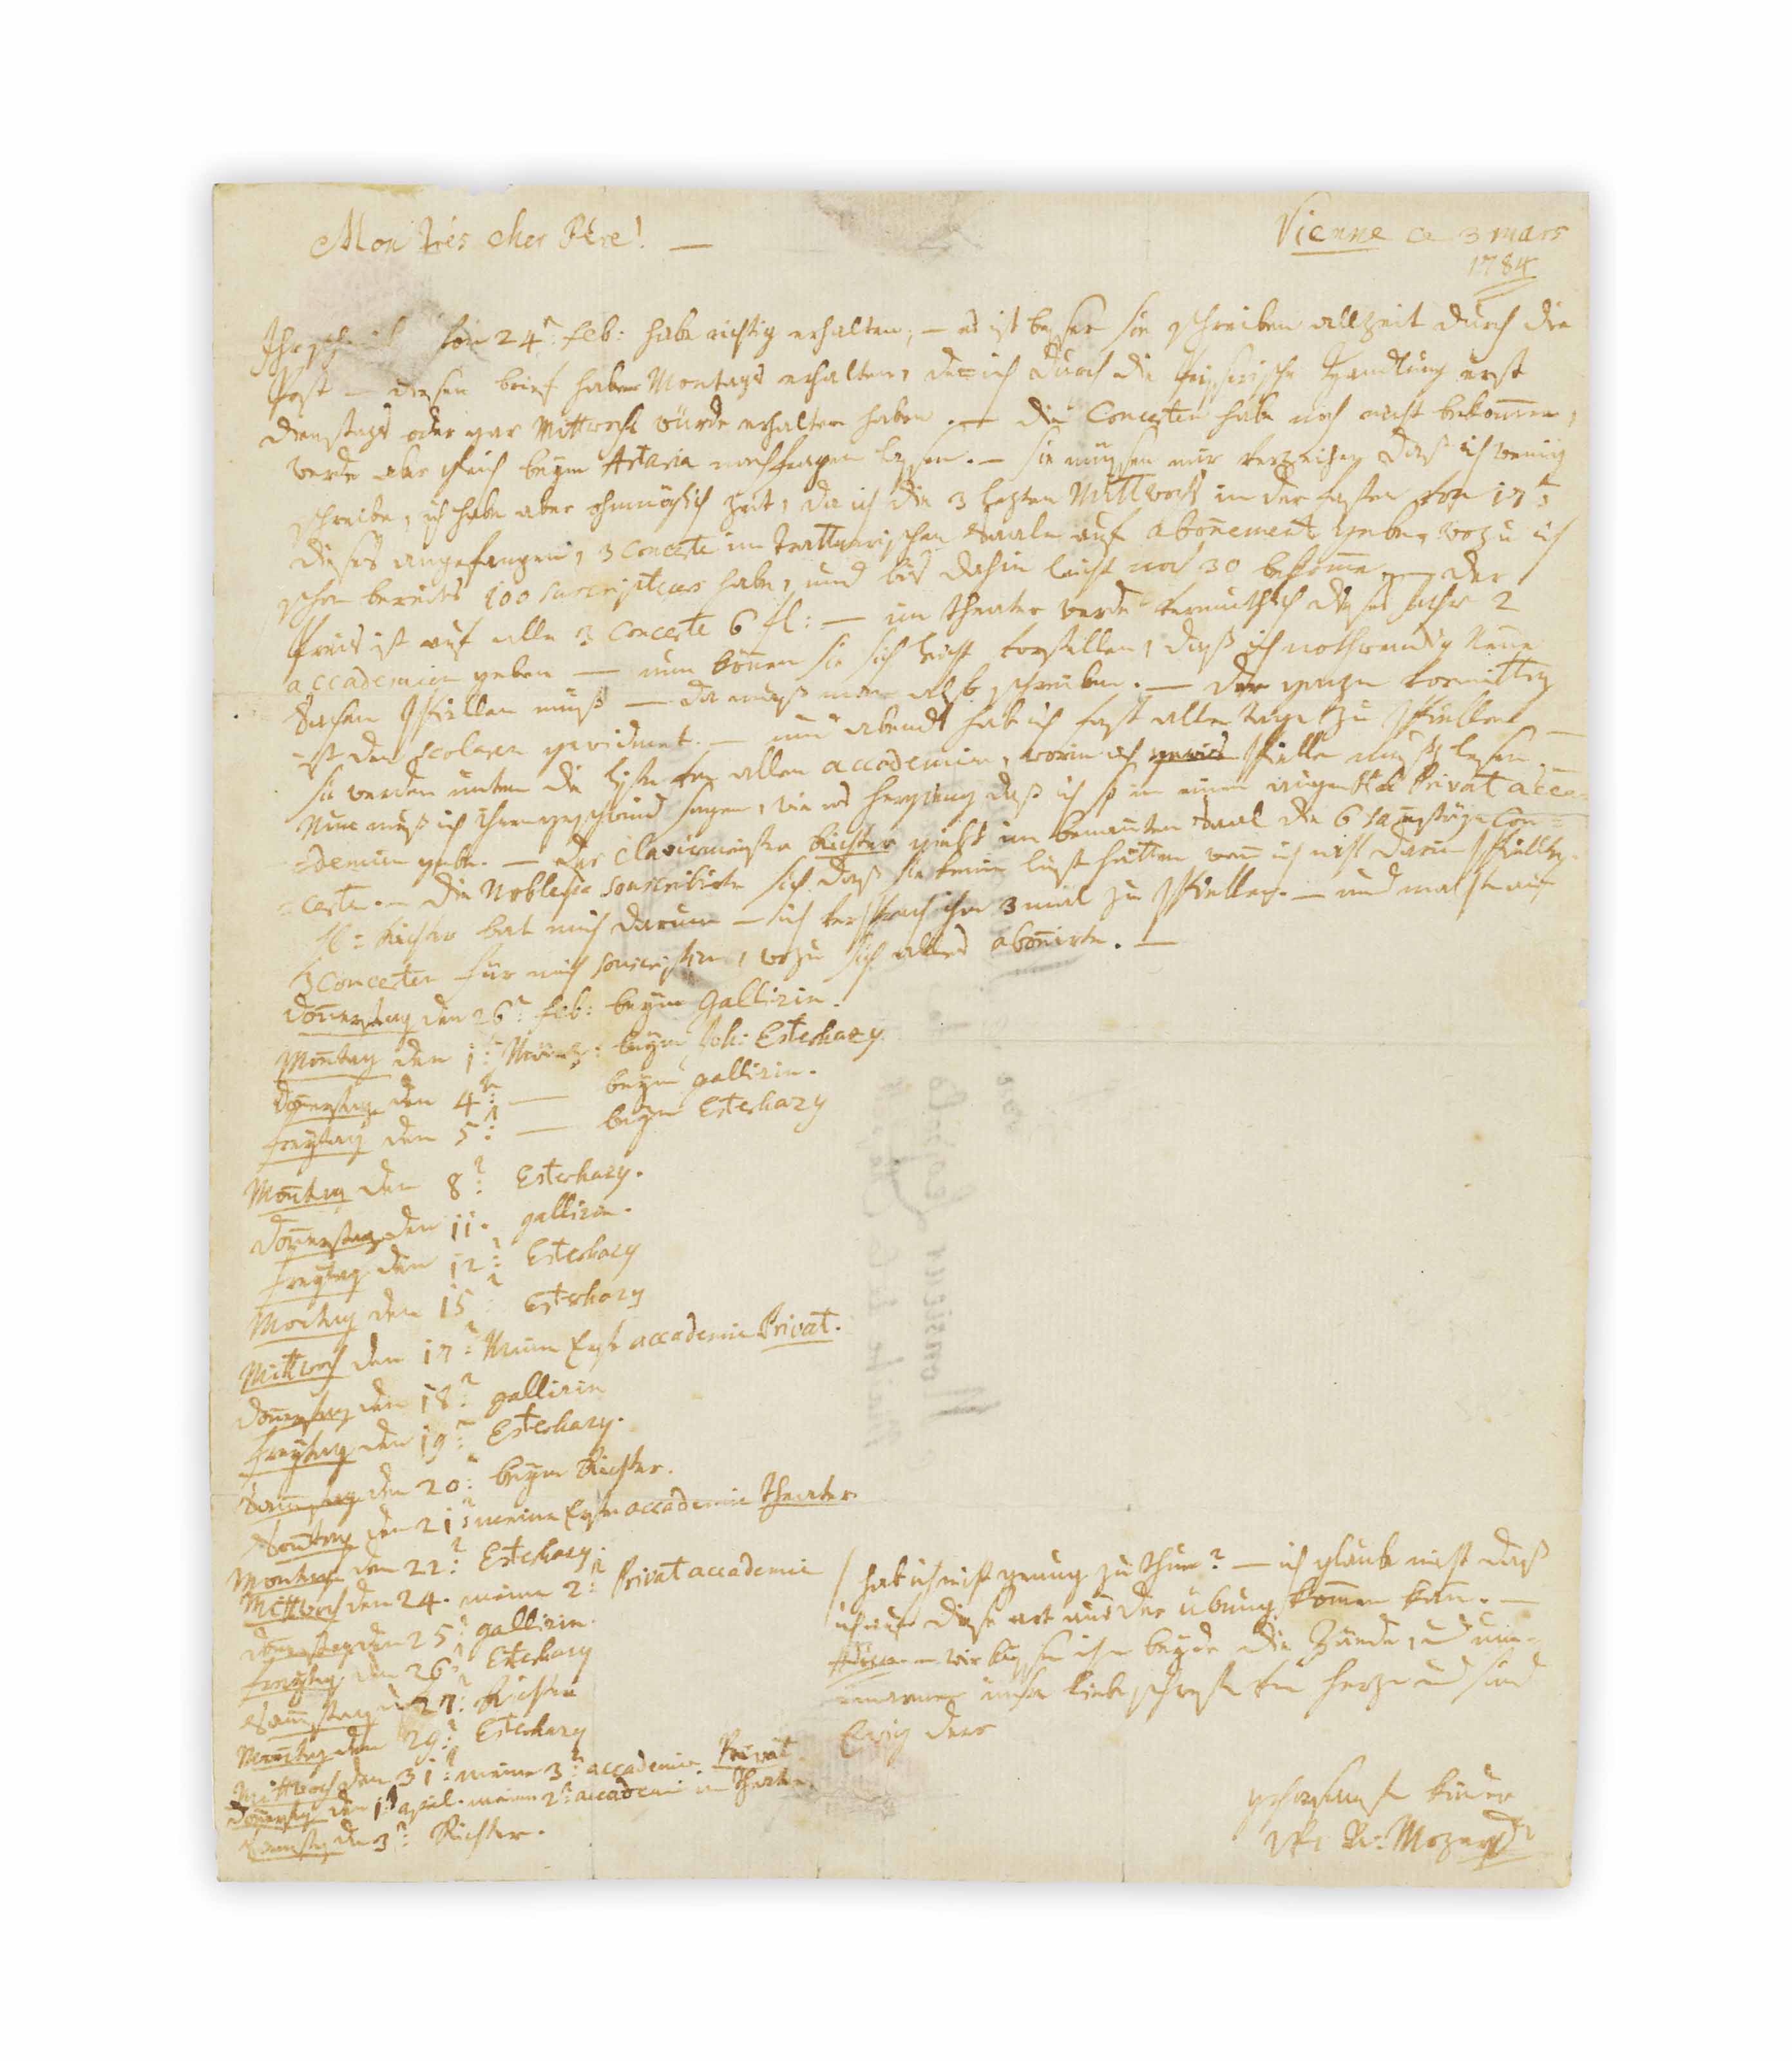 Mon trés cher Pére! —
Vienne ce 3 mars
1784
Ihr schreiben von 24:n feb: habe richtig erhalten; — es ist besser sie schreiben allzeit durch die
Post — diesen brief habe Montags erhalten, den ich durch die Peisserische Handlung erst
dienstags oder gar Mittwoch würde erhalten haben. — die Concerten habe noch nicht bekommen,
werde aber gleich beym Artaria nachfragen lassen. — sie müssen mir verzeihen daß ich wenig
schreibe, ich habe aber ohnmöglich zeit, da ich die 3 lezten Mittwoch in der fasten von 17:t
dieses angefangen, 3 Concerte im trattnerischen Saale auf abonement gebe, wozu ich
schon bereits 100 suscripteurs habe, und bis dahin leicht noch 30 bekomme. — der
Preis ist auf alle 3 Concerte 6 fl: — im theater werde vermuthlich dieses Jahr 2
accademien geben — nun können sie sich leicht vorstellen, daß ich nothwendig Neue
Sachen spiellen muß — da muß man also schreiben. — der ganze vormittag
ist den scolaren gewidmet. — und abends hab ich fast alle tage zu spiellen —
sie werden unten die liste von allen accademien, worin ich gewis spielle muß lesen. —
Nun muß ich ihnen geschwind sagen, wie es herging daß ich so in einen augenblick Privat acca=
=demien gebe. — der claviermeister Richter giebt im benannten Saal die 6 Samstäge Con=
=certe. — die Noblesse souscribirte sich, daß sie keine lust hätten wenn ich nicht darin spiellte.
H: Richter bat mich darum — ich versprach ihm 3 mal zu spiellen. — und machte auf
3 Concerten für mich souscription, wozu sich alles abonnirte. —
Donnerstag den 26:t feb: beym Gallizin.
Montag den 1:t März: beym Joh: Esterhazy.
Donnerstag den 4:t — beym gallizin.
freytag den 5:t — beym Esterhazy
Montag den 8:t Esterhazy.
Donnerstag den 11. gallizin.
freytag den 12:t Esterhazy
Montag den 15:t Esterhazy
Mittwoch den 17:t Meine Erste accademie Privat.
Donnerstag den 18:t gallizin
freytag den 19:t Esterhazy.
Samstag den 20:t beym Richter.
Sonntag den 21:t meine Erste accademie theater.
Montag den 22:t Esterhazy.
Mittwoch den 24. meine 2:t Privat accademie
Donnerstag den 25:t gallizin.
freytag den 26:t Esterhazy
Samstag den 27:t Richter
Montag den 29:t Esterhazy
Mittwoch den 31:t meine 3:t accademie Privat.
Donnerstag den 1:t april. meine 2:t accademie im theater.
Samstag den 3:t Richter.
hab ich nicht genug zu thun? — ich glaube nicht daß
ich auf diese art aus der übung kommen kann. —
Adieu — wir küssen ihnen beyde die Hände, und um=
=armen unsere liebe schwester von herzen und sind
Ewig dero
gehorsamste kinder
W: A: Mozart